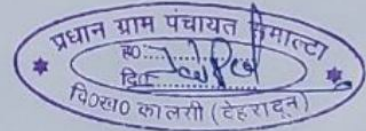 प्रधान ग्राम पंचायत समाल्टा
ह०
दि०
वि०ख० कालसी (देहरादून)